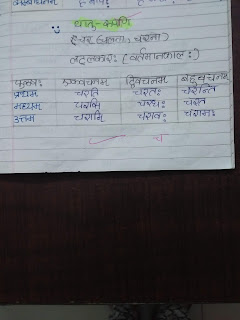 धातु-रूपाणि
1-चर (चलना, चरना)
लट्लकारः (वर्तमानकालः)
पुरुषः एकवचनम् द्विवचनम् बहुवचनम्
प्रथम चरति चरतः चरन्ति
मध्यम चरसि चरथः चरथ
उत्तम चरामि चरावः चरामः